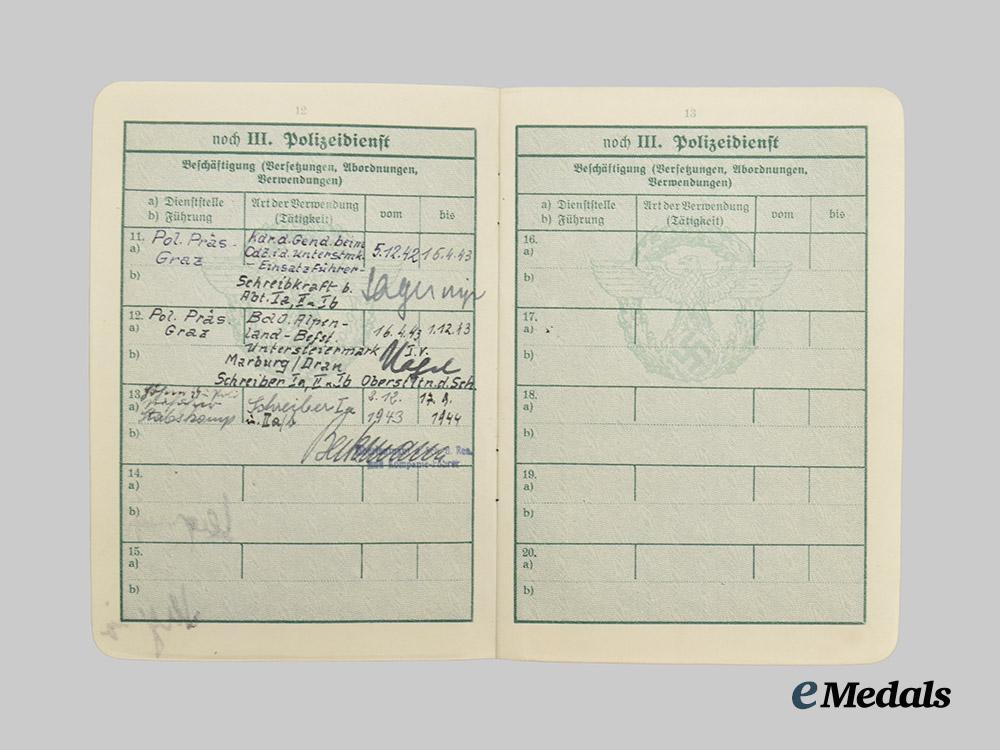 12
noch III. Polizeidienst
Beschäftigung (Versetzungen, Abordnungen,
Verwendungen)
a) Dienststelle
b) Führung
Art der Verwendung
(Tätigkeit)
vom
bis
11.
a)
Pol. Präs.
Graz
Kdr.d.Gend. beim
CdZ.i.d. Unterstmk.
- Einsatzführer-
5.12.42
15.4.43
b)
Schreibkraft b.
Abt. Ia, II u. Ib
12.
a)
Pol. Präs.
Graz
BdO. Alpen-
land - Befst.
Untersteiermark
16.4.43
1.12.43
b)
Marburg/Drau
Schreiber Ia, II u. Ib
I.V.
Oberstltn.d.Sch.
13.
a)
Stabskomp
Schreiber Ia
u. IIa/b
2.12.
1943
17.9.
1944
b)
Beckmann
d. Res.
und Kompanie-Führer
14.
a)
b)
15.
a)
b)
13
noch III. Polizeidienst
Beschäftigung (Versetzungen, Abordnungen,
Verwendungen)
a) Dienststelle
b) Führung
Art der Verwendung
(Tätigkeit)
vom
bis
16.
a)
b)
17.
a)
b)
18.
a)
b)
19.
a)
b)
20.
a)
b)
eMedals